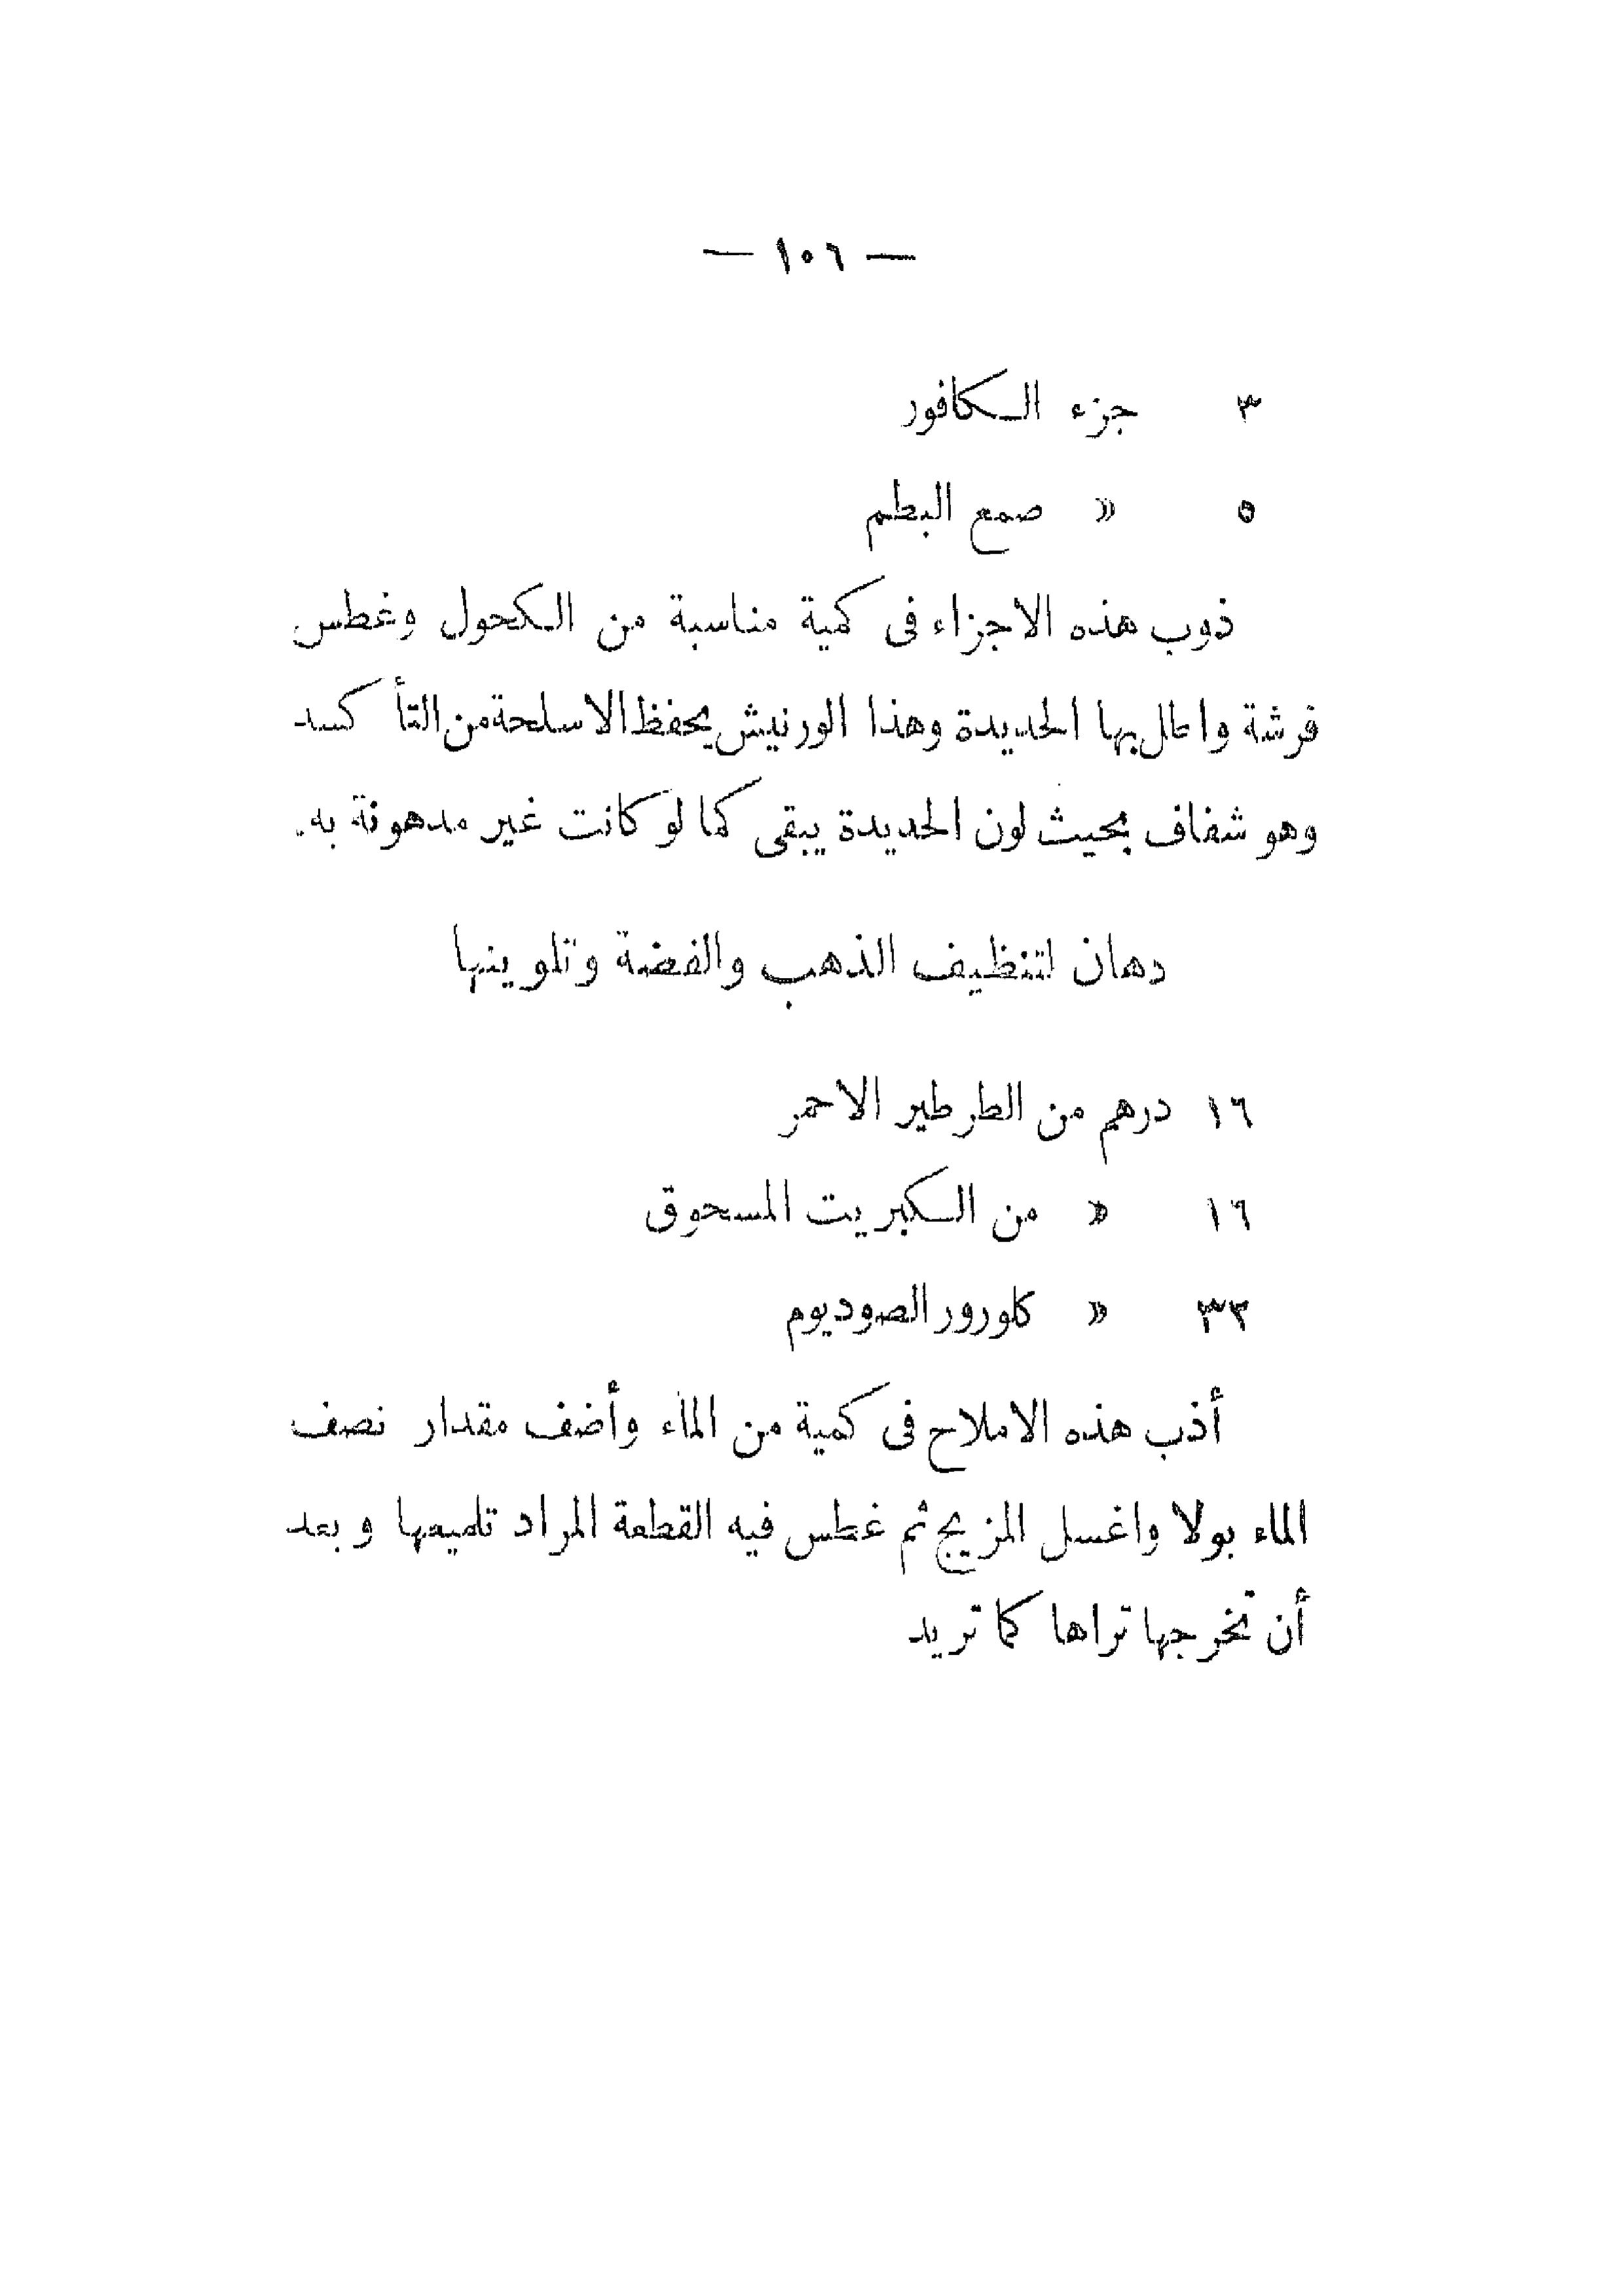 — ١٠٦ —
٣ جزء الكافور
٥ » صمع البطم
ذوب هذه الاجزاء فى كمية مناسبة من الكحول وغطس
فرشة واطل بها الحديدة وهذا الورنيش يحفظ الاسلحة من التأكسد
وهو شفاف بحيث لون الحديدة يبقى كما لو كانت غير مدهونة به.
دهان لتنظيف الذهب والفضة وتلوينها
١٦ درهم من الطرطير الاحمر
١٦ » من الكبريت المسحوق
٣٣ » كلورور الصوديوم
أذب هذه الاملاح فى كمية من الماء وأضف مقدار نصف
الماء بولا واغسل المزيج ثم غطس فيه القطعة المراد تلميعها وبعد
أن تخرجها تراها كما تريد